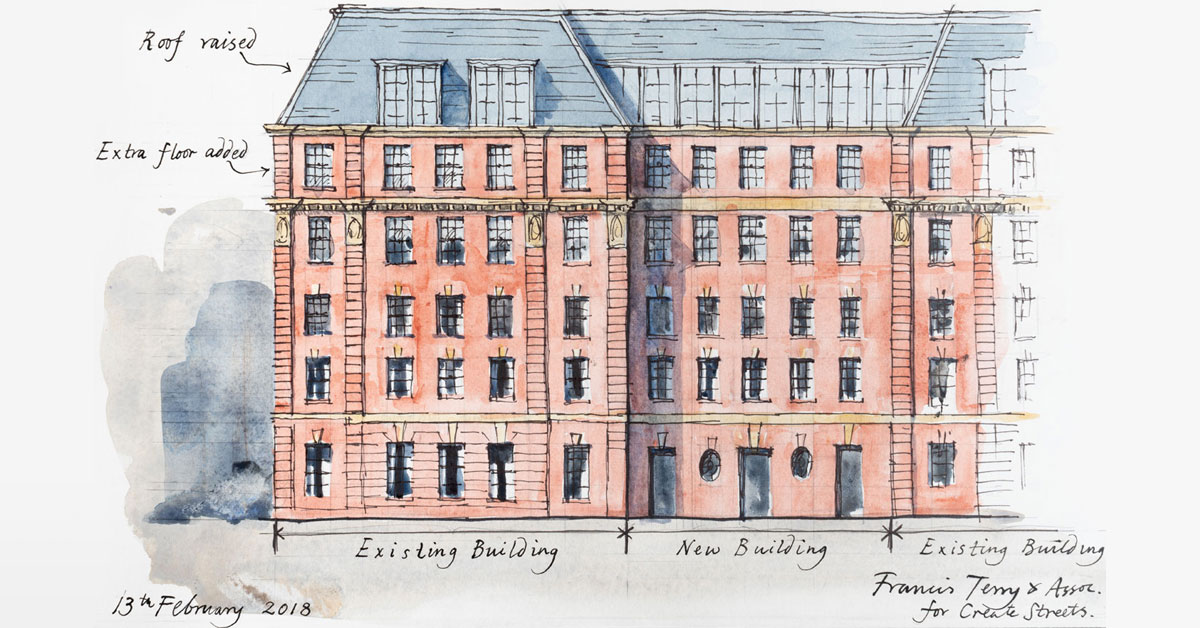 Roof raised
Extra floor added
Existing Building
New Building
Existing Building
13th February 2018
Francis Terry & Assoc.
for Create Streets.